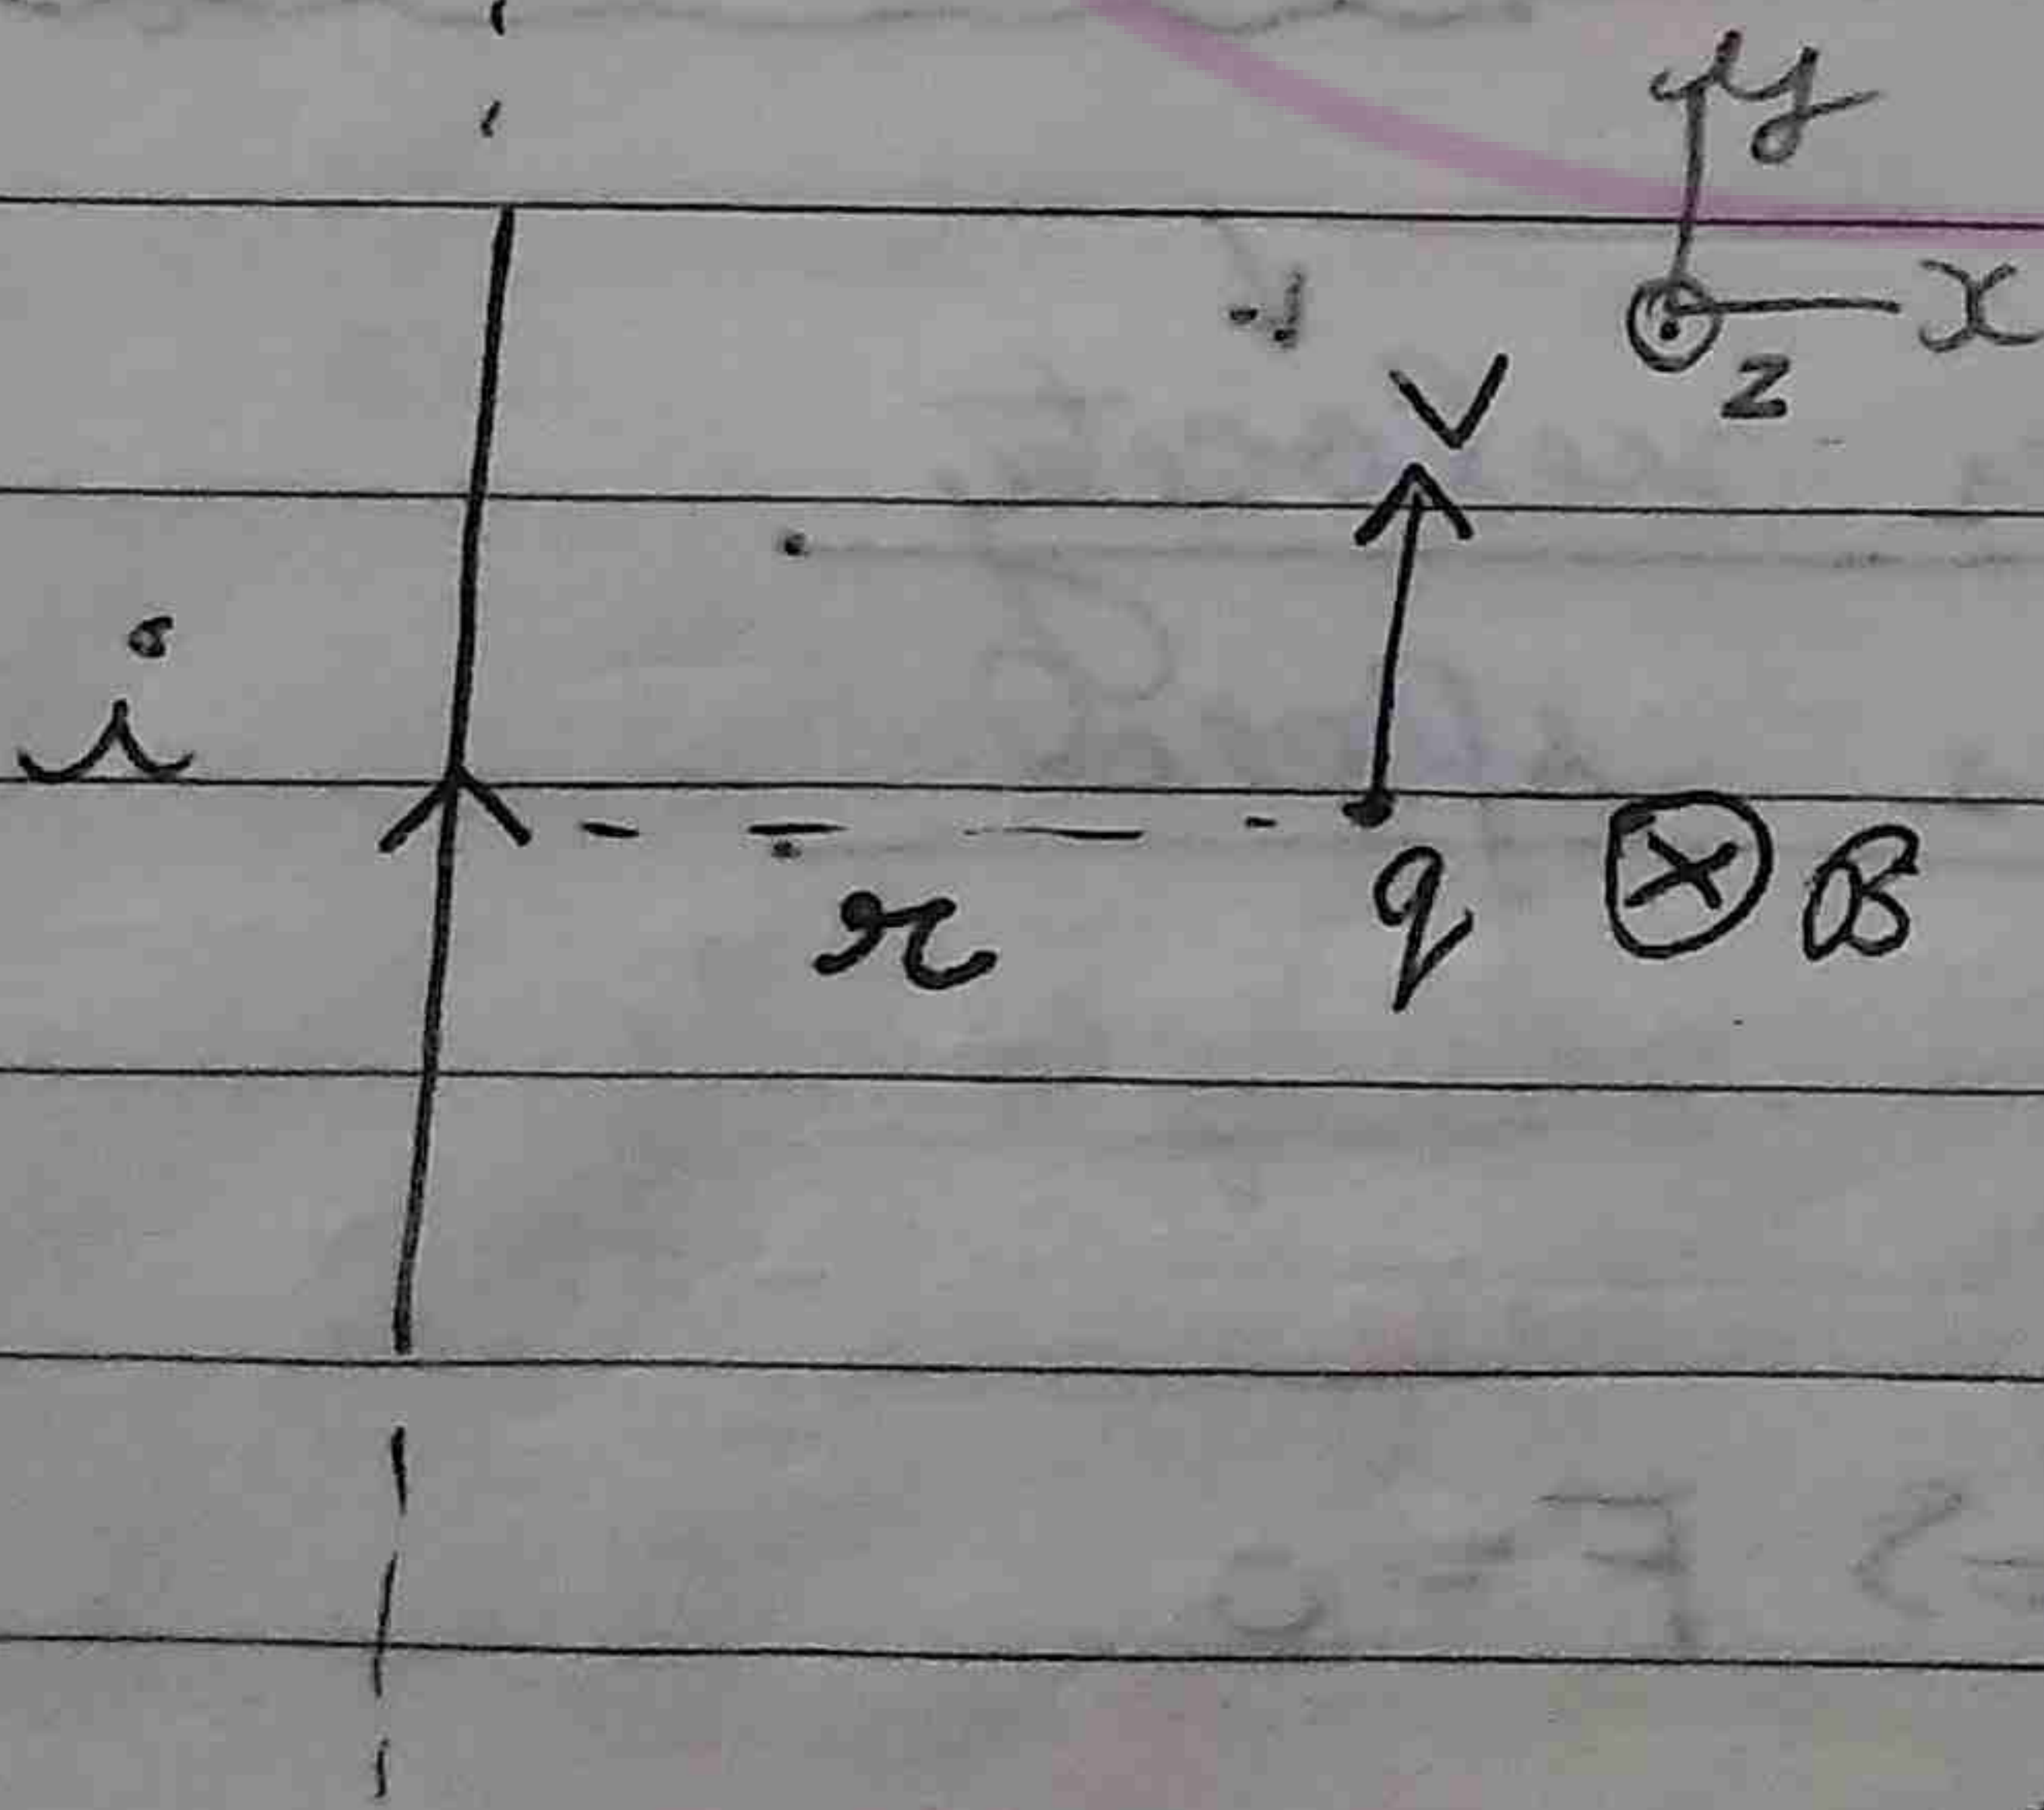 y
x
z
V
i
r
q
B